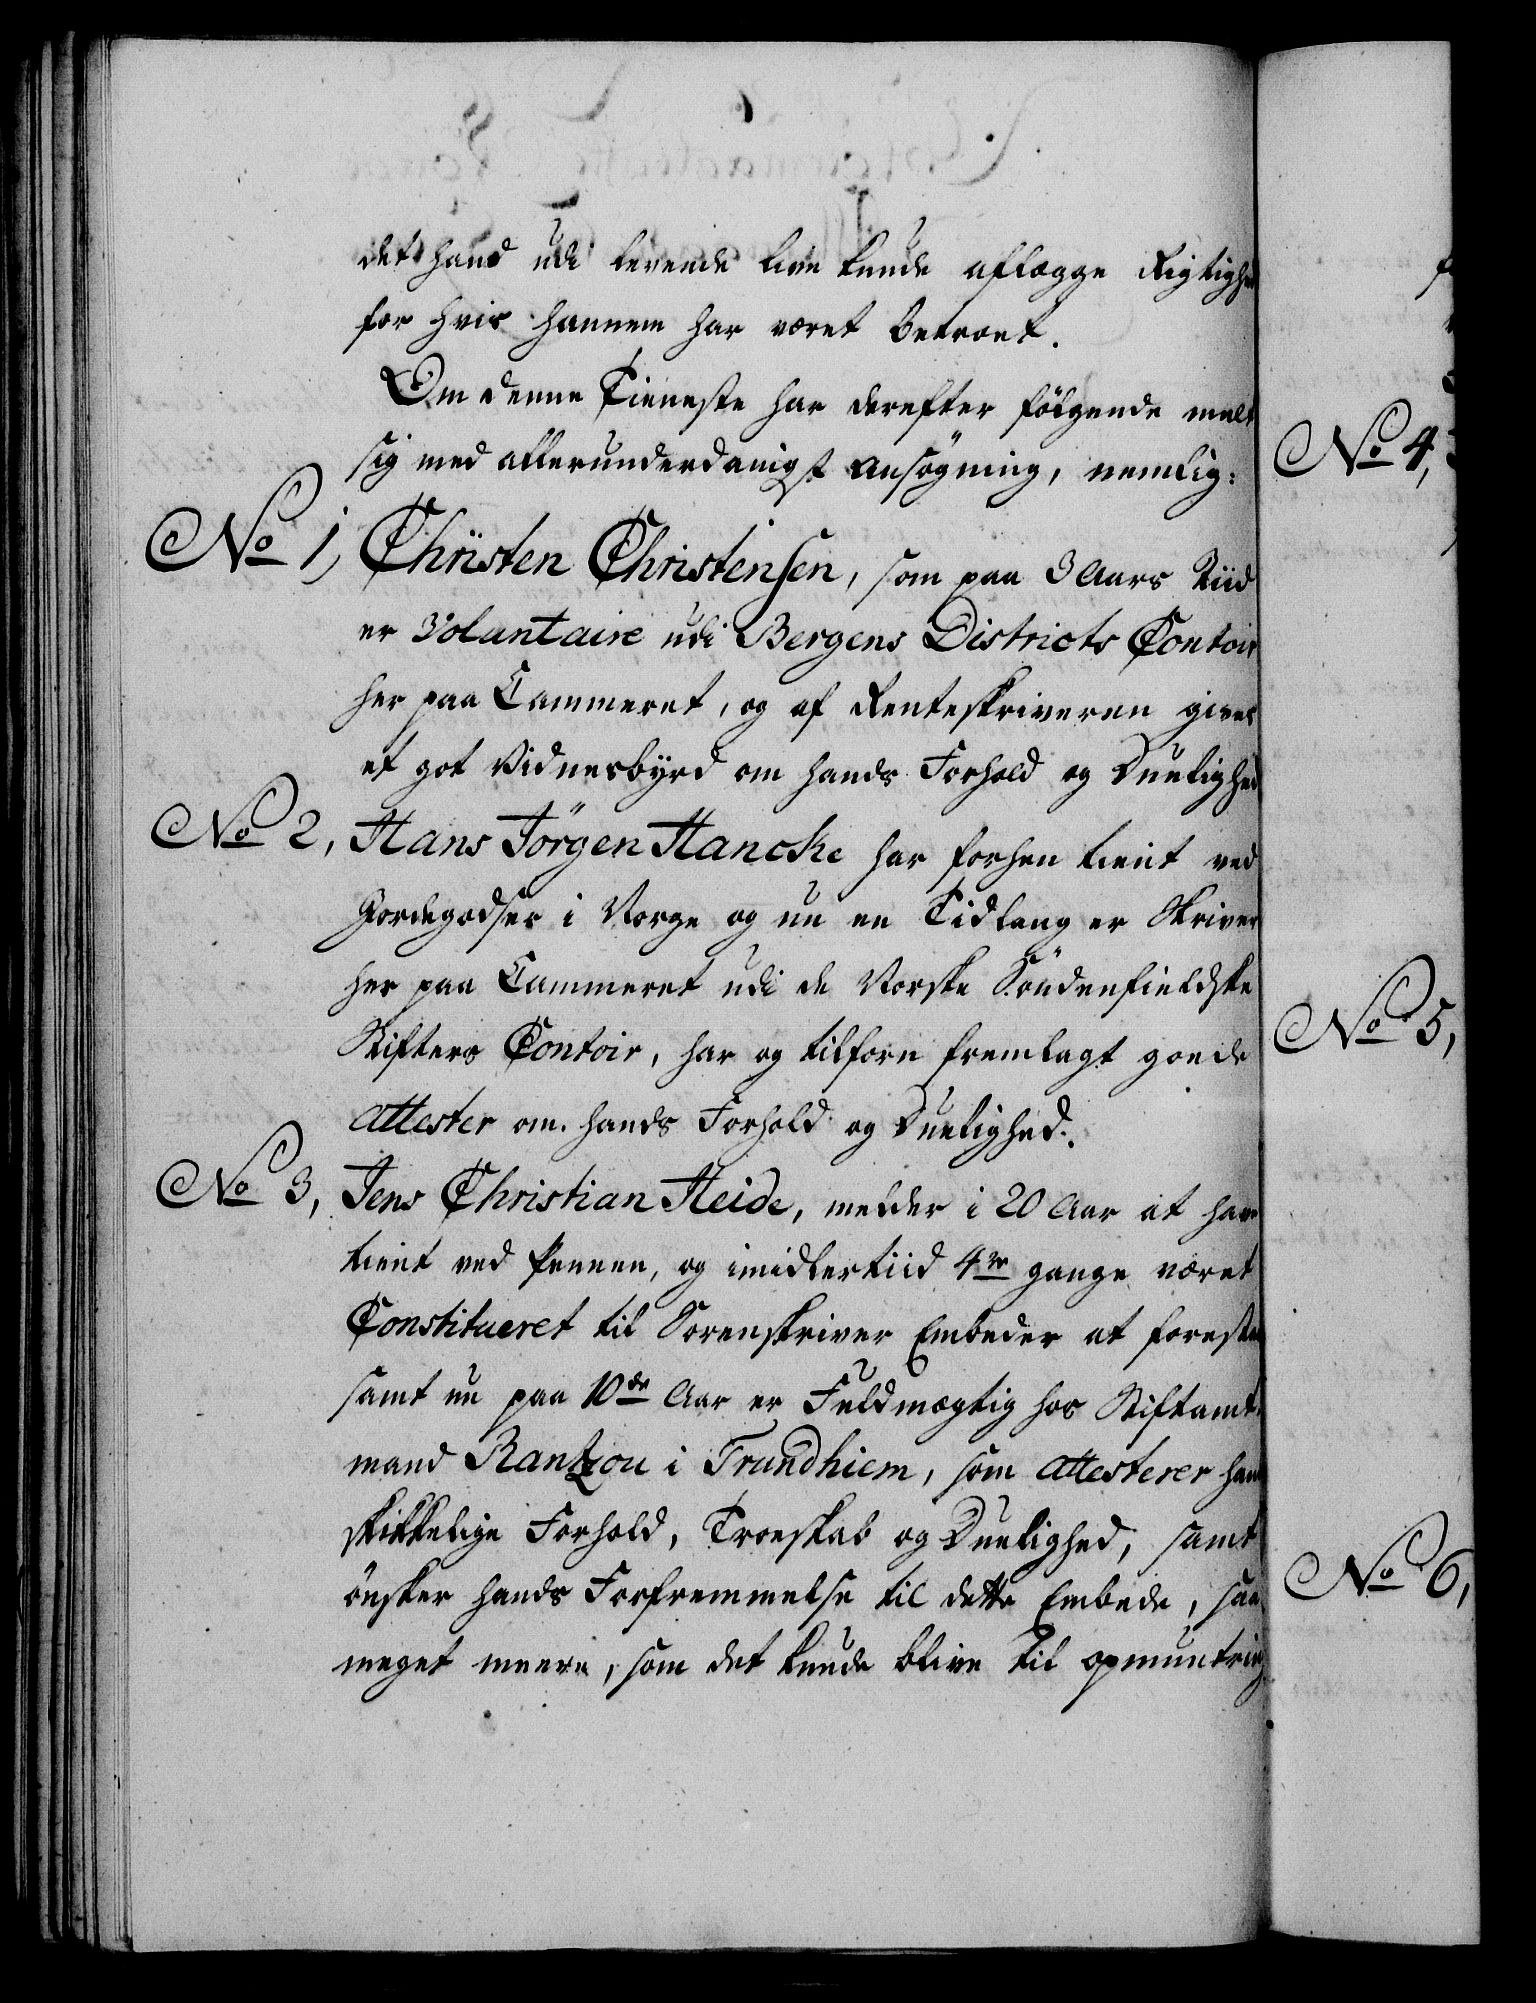 det hand udi levende live kunde aflægge Rigtighed
for hvis hannem har været betroet.
Om denne Tieneste har derefter følgende meldt
sig med allerunderdanigst ansøgning, nemlig:
No 1, Christen Christensen, som paa 3 Aars Tiid
er Volontaire udi Bergens Districts Contoir
her paa Cammeret, og af Renteskriveren gives
et got Vidnesbyrd om hands Forhold og Duelighed
No 2, Hans Jörgen Hancke har forhen tient ved
Jordegodser i Norge og nu en Tidlang er Skriver
her paa Cammeret udi de Norske Söndenfieldske
Stifters Contoir, har og tilforn fremlagt goede
attester om hands Forhold og Duelighed.
No 3, Jens Christian Heide, melder i 20 Aar at have
tient ved Pennen, og imidlertiid 4re gange været
Constitueret til Sorenskriver Embeder at forestaa
samt nu paa 10de Aar er Fuldmægtig hos Stiftamt-
mand Rantzou i Trundhiem, som attesterer hands
skikkelige Forhold, Troeskab og Duelighed, samt
önsker hands Forfremmelse til dette Embede, saa
meget meere, som det kunde blive til opmuntring
No 4,
No 5,
No 6,